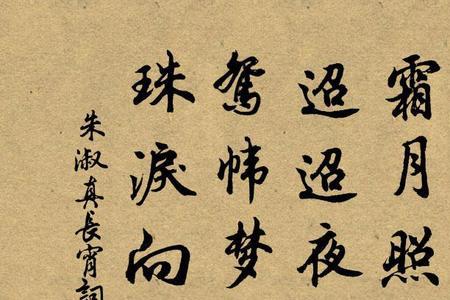 霜月照
迢迢夜
鴛幃梦
珠淚向
朱淑真長宵詞